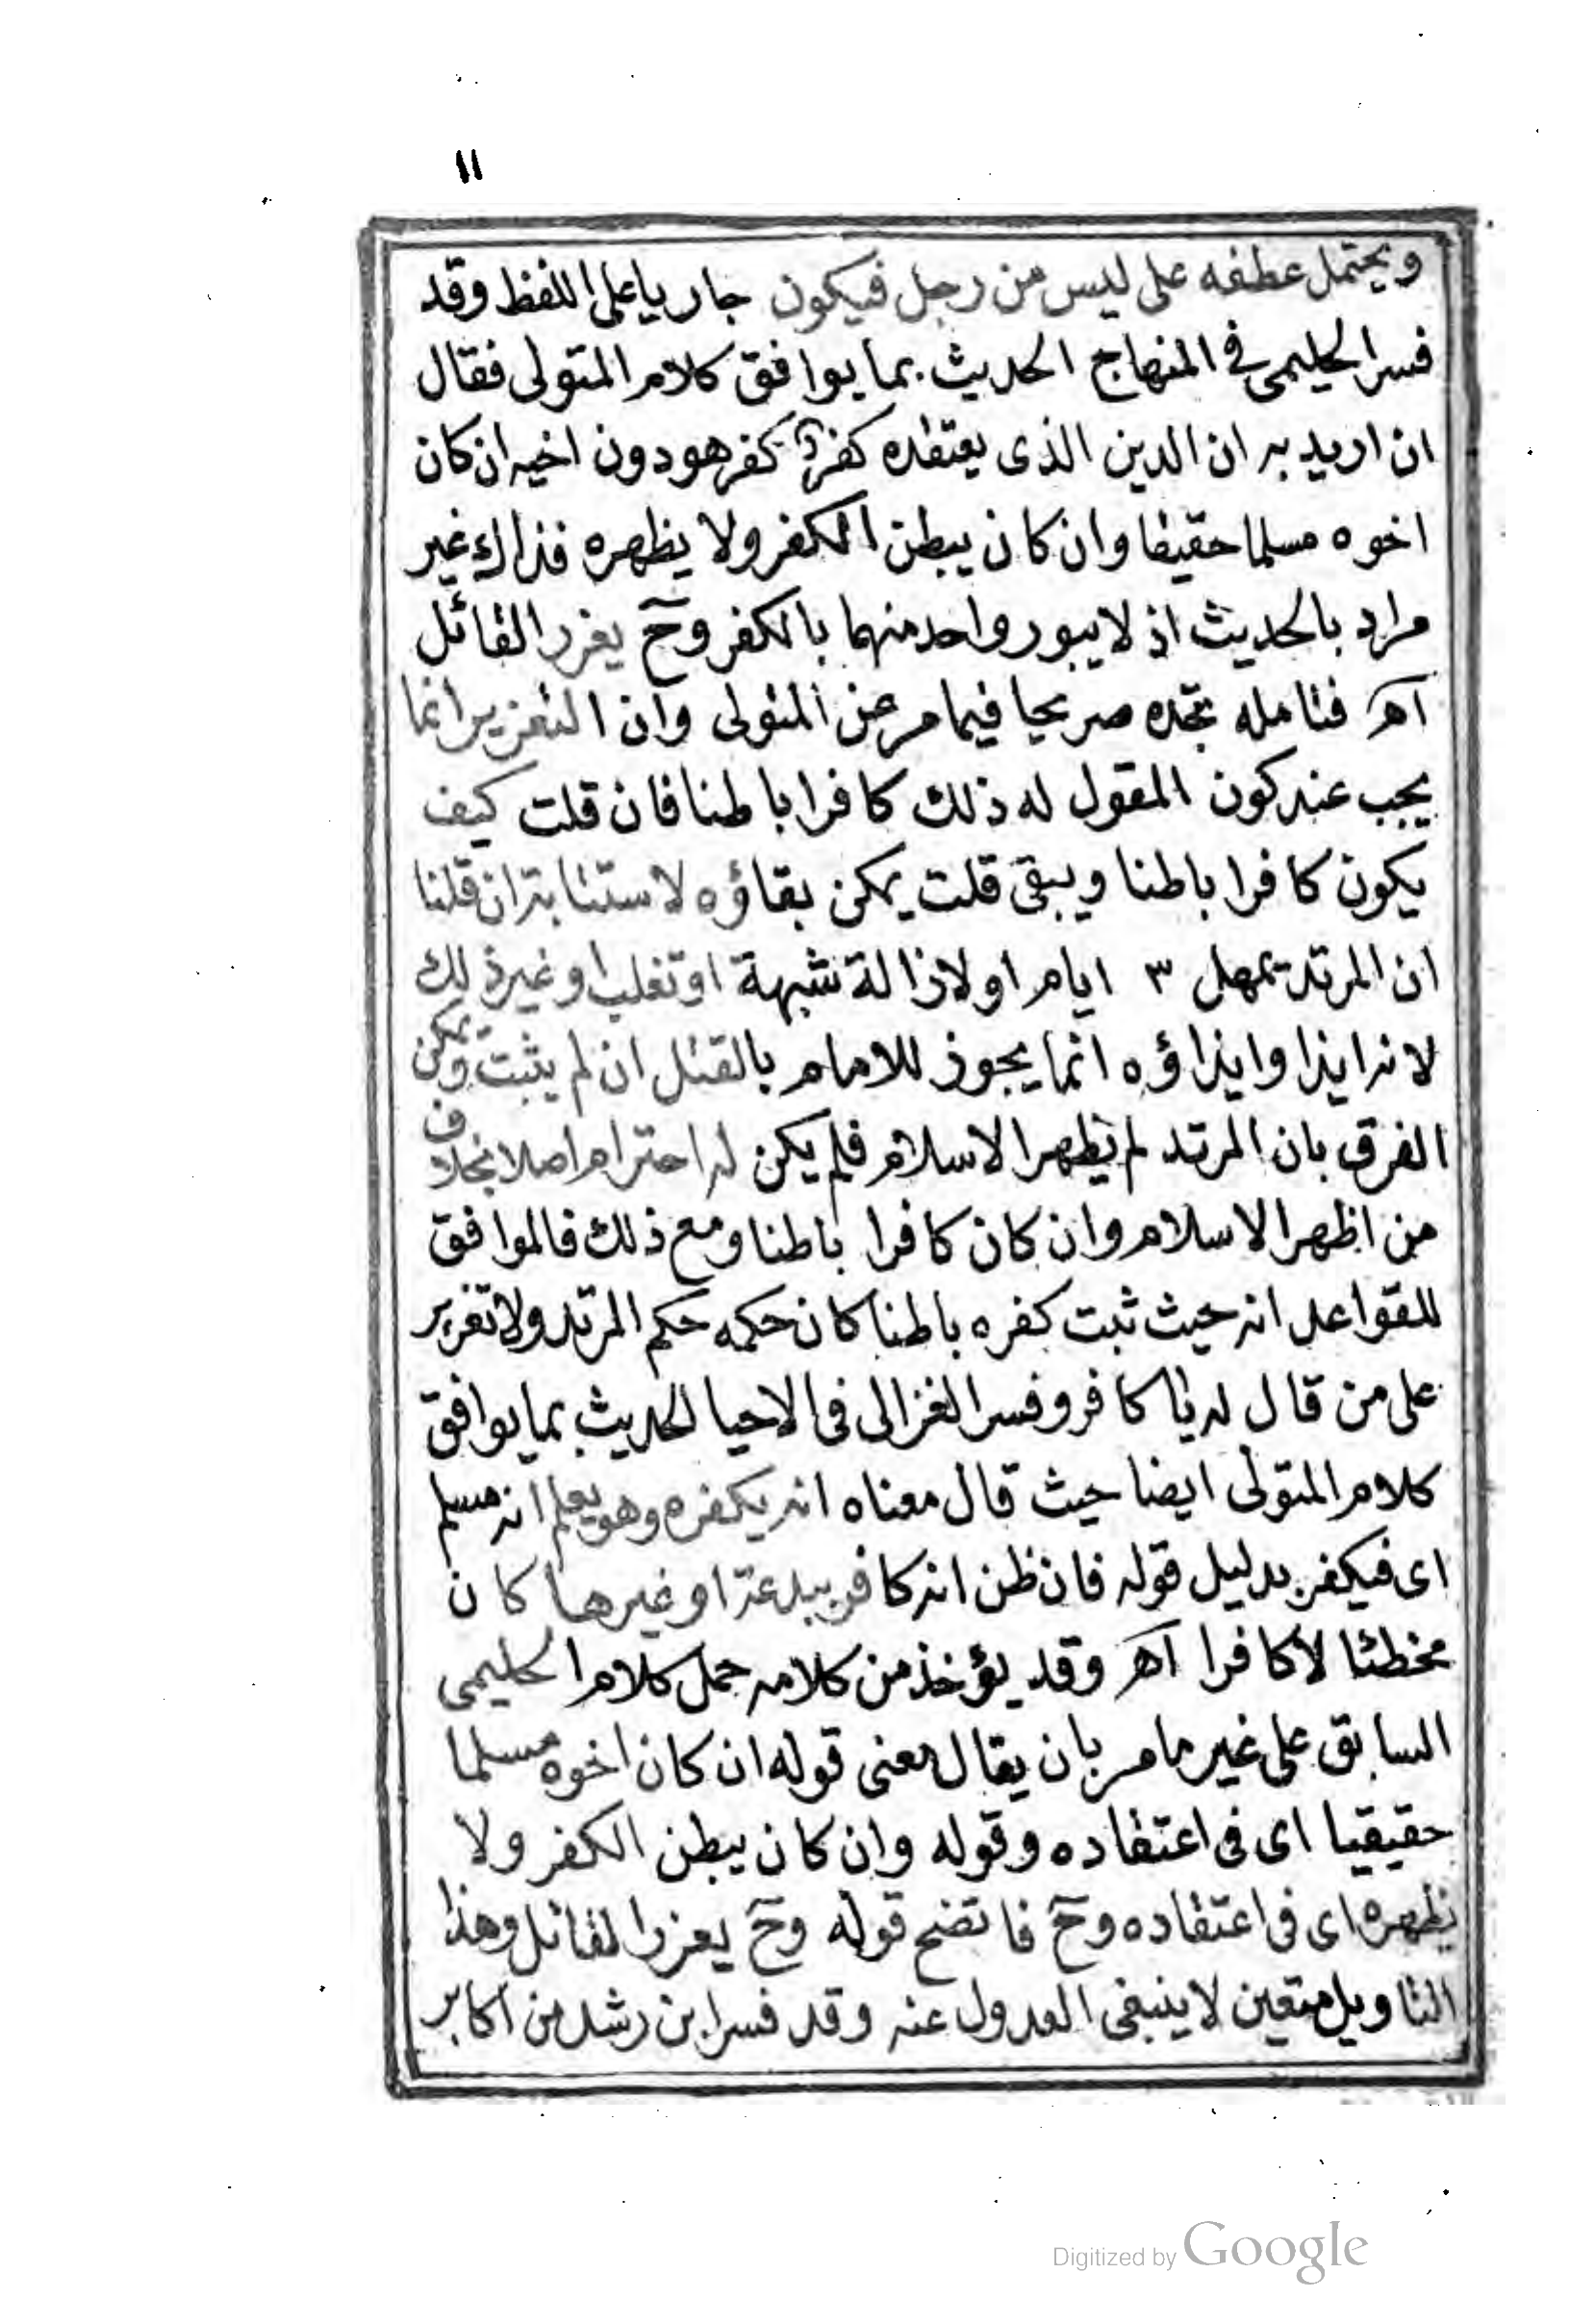 ١١
ويحتمل عطفه على ليس من رجل فيكون جاريا على اللفظ وقد
فسر الحليمى فى المنهاج الحديث بما يوافق كلام المتولى فقال
ان اريد به ان الدين الذى يعتقده كفر كفر هو دون اخيه ان كان
اخوه مسلما حقيقا وان كان يبطن الكفر ولا يظهره فذاك غير
مراد بالحديث اذ لا يبور واحد منهما بالكفر وح يعزر القائل
اهـ فتامله تجده صريحا فيما مر عن المتولى وان التعزير انما
يجب عند كون المقول له ذلك كافرا باطنا فان قلت كيف
يكون كافرا باطنا ويبقى قلت يمكن بقاؤه لاستتابته ان قلنا
ان المرتد يمهل ٣ ايام او لازالة شبهة او تغلب او غير ذلك
لانه ايذا وايذاؤه انما يجوز للامام بالقتل ان لم يثبت ويمكن
الفرق بان المرتد لم يظهر الاسلام فلم يكن له احترام اصلا بخلاف
من اظهر الاسلام وان كان كافرا باطنا ومع ذلك فالموافق
للقواعد انه حيث ثبت كفره باطنا كان حكمه حكم المرتد ولا تعزير
على من قال له يا كافر وفسر الغزالى فى الاحيا الحديث بما يوافق
كلام المتولى ايضا حيث قال معناه انه يكفره وهو يعلم انه مسلم
اى فيكفر بدليل قوله فان ظن انه كافر ببدعة او غيرها كان
مخطئا لا كافرا اهـ وقد يؤخذ من كلامه حمل كلام الحليمى
السابق على غير ما مر بان يقال معنى قوله ان كان اخوه مسلما
حقيقيا اى فى اعتقاده وقوله وان كان يبطن الكفر ولا
يظهره اى فى اعتقاده وح فاتضح قوله وح يعزر القائل وهذا
التاويل متعين لا ينبغى العدول عنه وقد فسر ابن رشد من اكابر
Digitized by Google